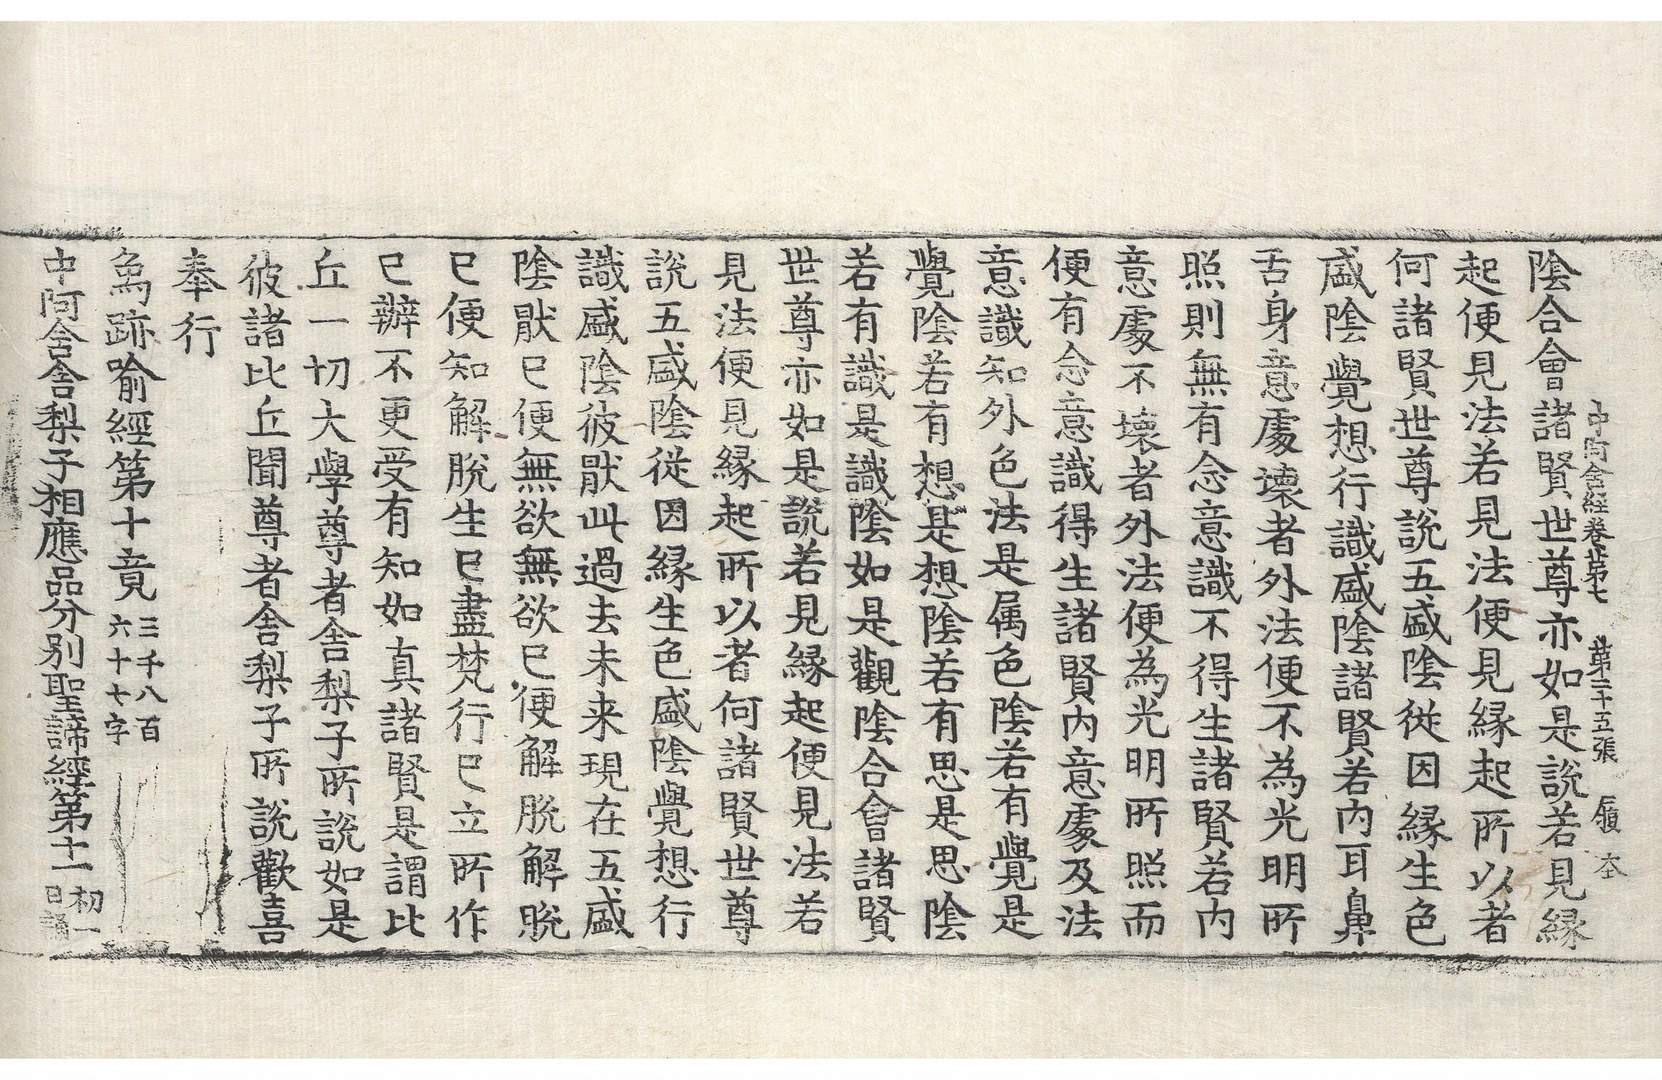 中阿含經卷第七　第二十五張　履　夲
陰合會諸賢世尊亦如是說若見縁
起便見法若見法便見縁起所以者
何諸賢世尊說五盛陰從因縁生色
盛陰覺想行識盛陰諸賢若內耳鼻
舌身意處壊者外法便不為光明所
照則無有念意識不得生諸賢若內
意處不壊者外法便為光明所照而
便有念意識得生諸賢內意處及法
意識知外色法是属色陰若有覺是
覺陰若有想是想陰若有思是思陰
若有識是識陰如是觀陰合會諸賢
世尊亦如是說若見縁起便見法若
見法便見縁起所以者何諸賢世尊
說五盛陰從因縁生色盛陰覺想行
識盛陰彼厭此過去未来現在五盛
陰厭已便無欲無欲已便解脫解脫
已便知解脫生已盡梵行已立所作
已辦不更受有知如真諸賢是謂比
丘一切大學尊者舍梨子所說如是
彼諸比丘聞尊者舍梨子所說歡喜
奉行
象跡喻經第十竟 三千八百六十七字
中阿含舍梨子相應品分別聖諦經第十一 初一日誦